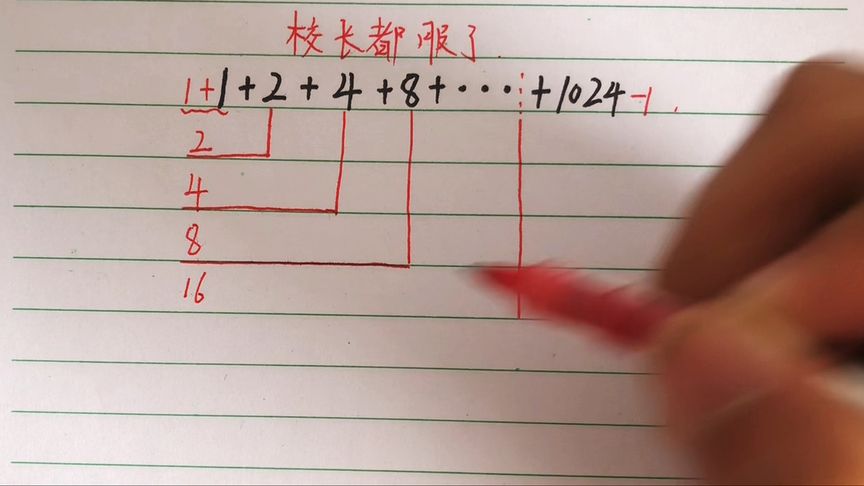 校长都服了
1+1+2+4+8+···+1024-1
2
4
8
16